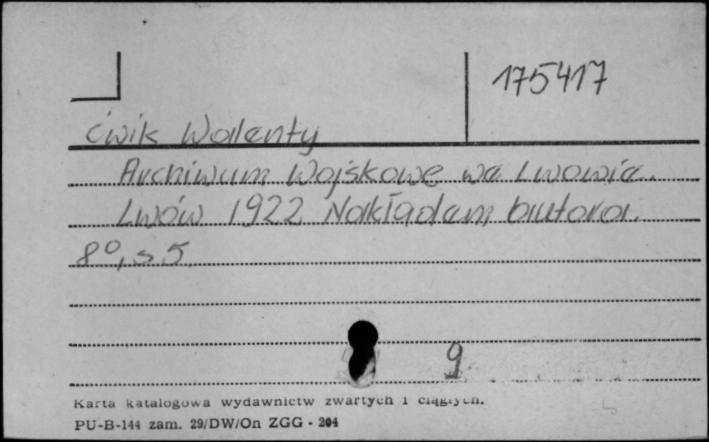 175417
Ćwik Walenty
Archiwum Wojskowe we Lwowie.
Lwów 1922 Nakładem autora.
8°, s 5
9
Karta katalogowa wydawnictw zwartych i ciągłych.
PU-B-144 zam. 29/DW/On ZGG - 204